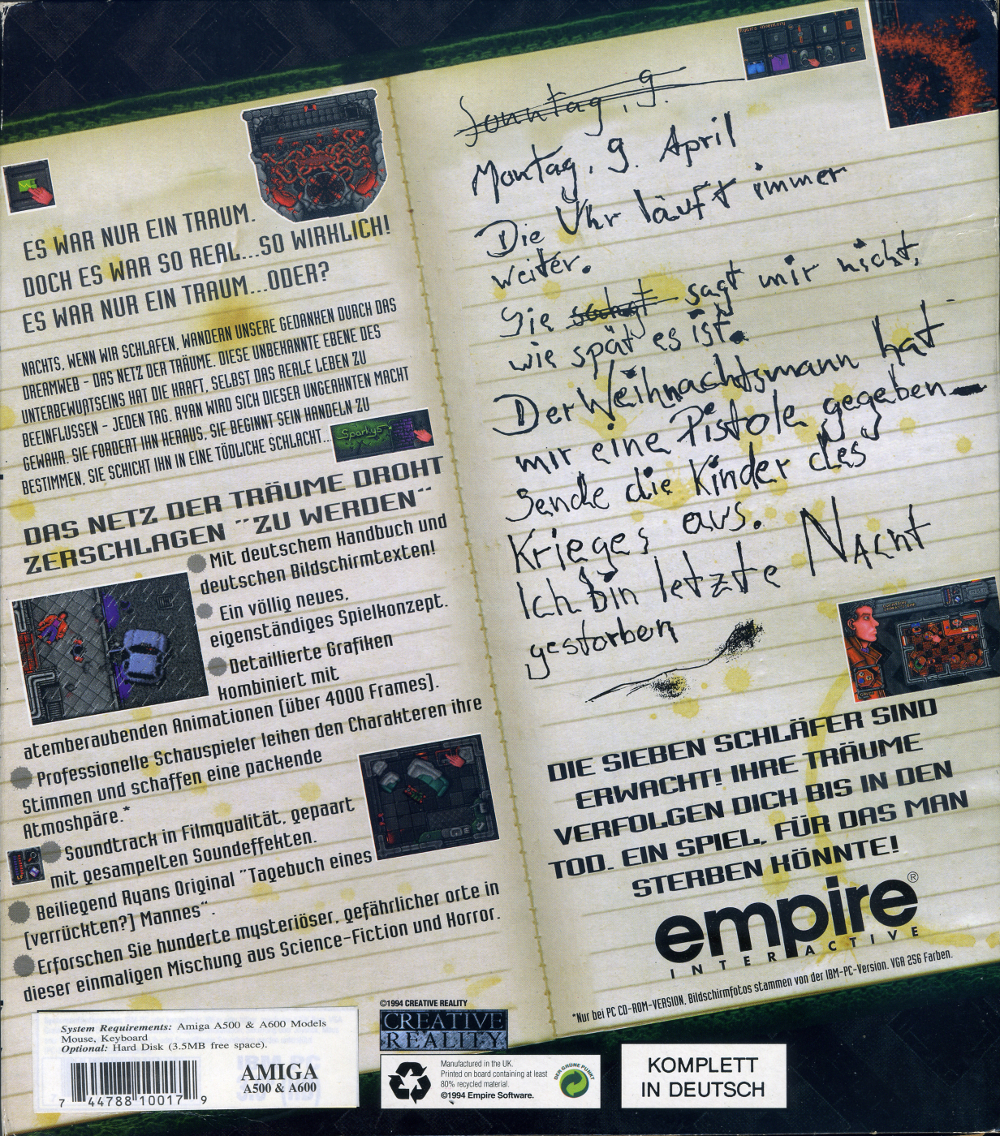 ES WAR NUR EIN TRAUM.
DOCH ES WAR SO REAL...SO WIRKLICH!
ES WAR NUR EIN TRAUM...ODER?
NACHTS, WENN WIR SCHLAFEN, WANDERN UNSERE GEDANKEN DURCH DAS
DREAMWEB - DAS NETZ DER TRÄUME. DIESE UNBEKANNTE EBENE DES
UNTERBEWUßTSEINS HAT DIE KRAFT, SELBST DAS REALE LEBEN ZU
BEEINFLUSSEN - JEDEN TAG. RYAN WIRD SICH DIESER UNGEAHNTEN MACHT
GEWAHR. SIE FORDERT IHN HERAUS, SIE BEGINNT SEIN HANDELN ZU
BESTIMMEN, SIE SCHICHT IHN IN EINE TÖDLICHE SCHLACHT...
Sparkys
DAS NETZ DER TRÄUME DROHT
ZERSCHLAGEN "ZU WERDEN"
Mit deutschem Handbuch und
deutschen Bildschirmtexten!
Ein völlig neues,
eigenständiges Spielkonzept.
Detaillierte Grafiken
kombiniert mit
atemberaubenden Animationen (über 4000 Frames).
Professionelle Schauspieler leihen den Charakteren ihre
Stimmen und schaffen eine packende
Atmoshpäre.*
Soundtrack in Filmqualität, gepaart
mit gesampelten Soundeffekten.
Beiliegend Ryans Original "Tagebuch eines
(verrückten?) Mannes".
Erforschen Sie hunderte mysteriöser, gefährlicher orte in
dieser einmaligen Mischung aus Science-Fiction und Horror.
Sonntag, 9.
Montag, 9. April
Die Uhr läuft immer
weiter.
Sie sagt mir nicht,
wie spät es ist.
Der Weihnachtsmann hat
mir eine Pistole gegeben
Sende die Kinder des
Krieges aus.
Ich bin letzte Nacht
gestorben
DIE SIEBEN SCHLÄFER SIND
ERWACHT! IHRE TRÄUME
VERFOLGEN DICH BIS IN DEN
TOD. EIN SPIEL, FÜR DAS MAN
STERBEN KÖNNTE!
empire®
INTERACTIVE
*Nur bei PC CD-ROM-VERSION. Bildschirmfotos stammen von der IBM-PC-Version. VGA 256 Farben.
System Requirements: Amiga A500 & A600 Models
Mouse, Keyboard
Optional: Hard Disk (3.5MB free space).
7 44788 10017 9
AMIGA
A500 & A600
©1994 CREATIVE REALITY
CREATIVE
REALITY
Manufactured in the UK.
Printed on board containing at least
80% recycled material.
©1994 Empire Software.
DER GRÜNE PUNKT
KOMPLETT
IN DEUTSCH